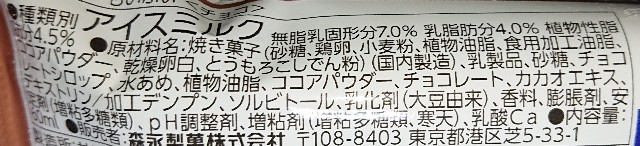 ●種類別 アイスミルク 無脂乳固形分7.0% 乳脂肪分4.0% 植物性脂
肪分4.5% ●原材料名:焼き菓子(砂糖、鶏卵、小麦粉、植物油脂、食用加工油脂、
ココアパウダー、乾燥卵白、とうもろこしでん粉)(国内製造)、乳製品、砂糖、チョコ
シロップ、水あめ、植物油脂、ココアパウダー、チョコレート、カカオエキス、
デキストリン/加工デンプン、ソルビトール、乳化剤(大豆由来)、香料、膨脹剤、安
定剤(増粘多糖類)、pH調整剤、増粘剤(増粘多糖類、寒天)、乳酸Ca ●内容量:
ml ●販売者:森永製菓株式会社 〒108-8403 東京都港区芝5-33-1